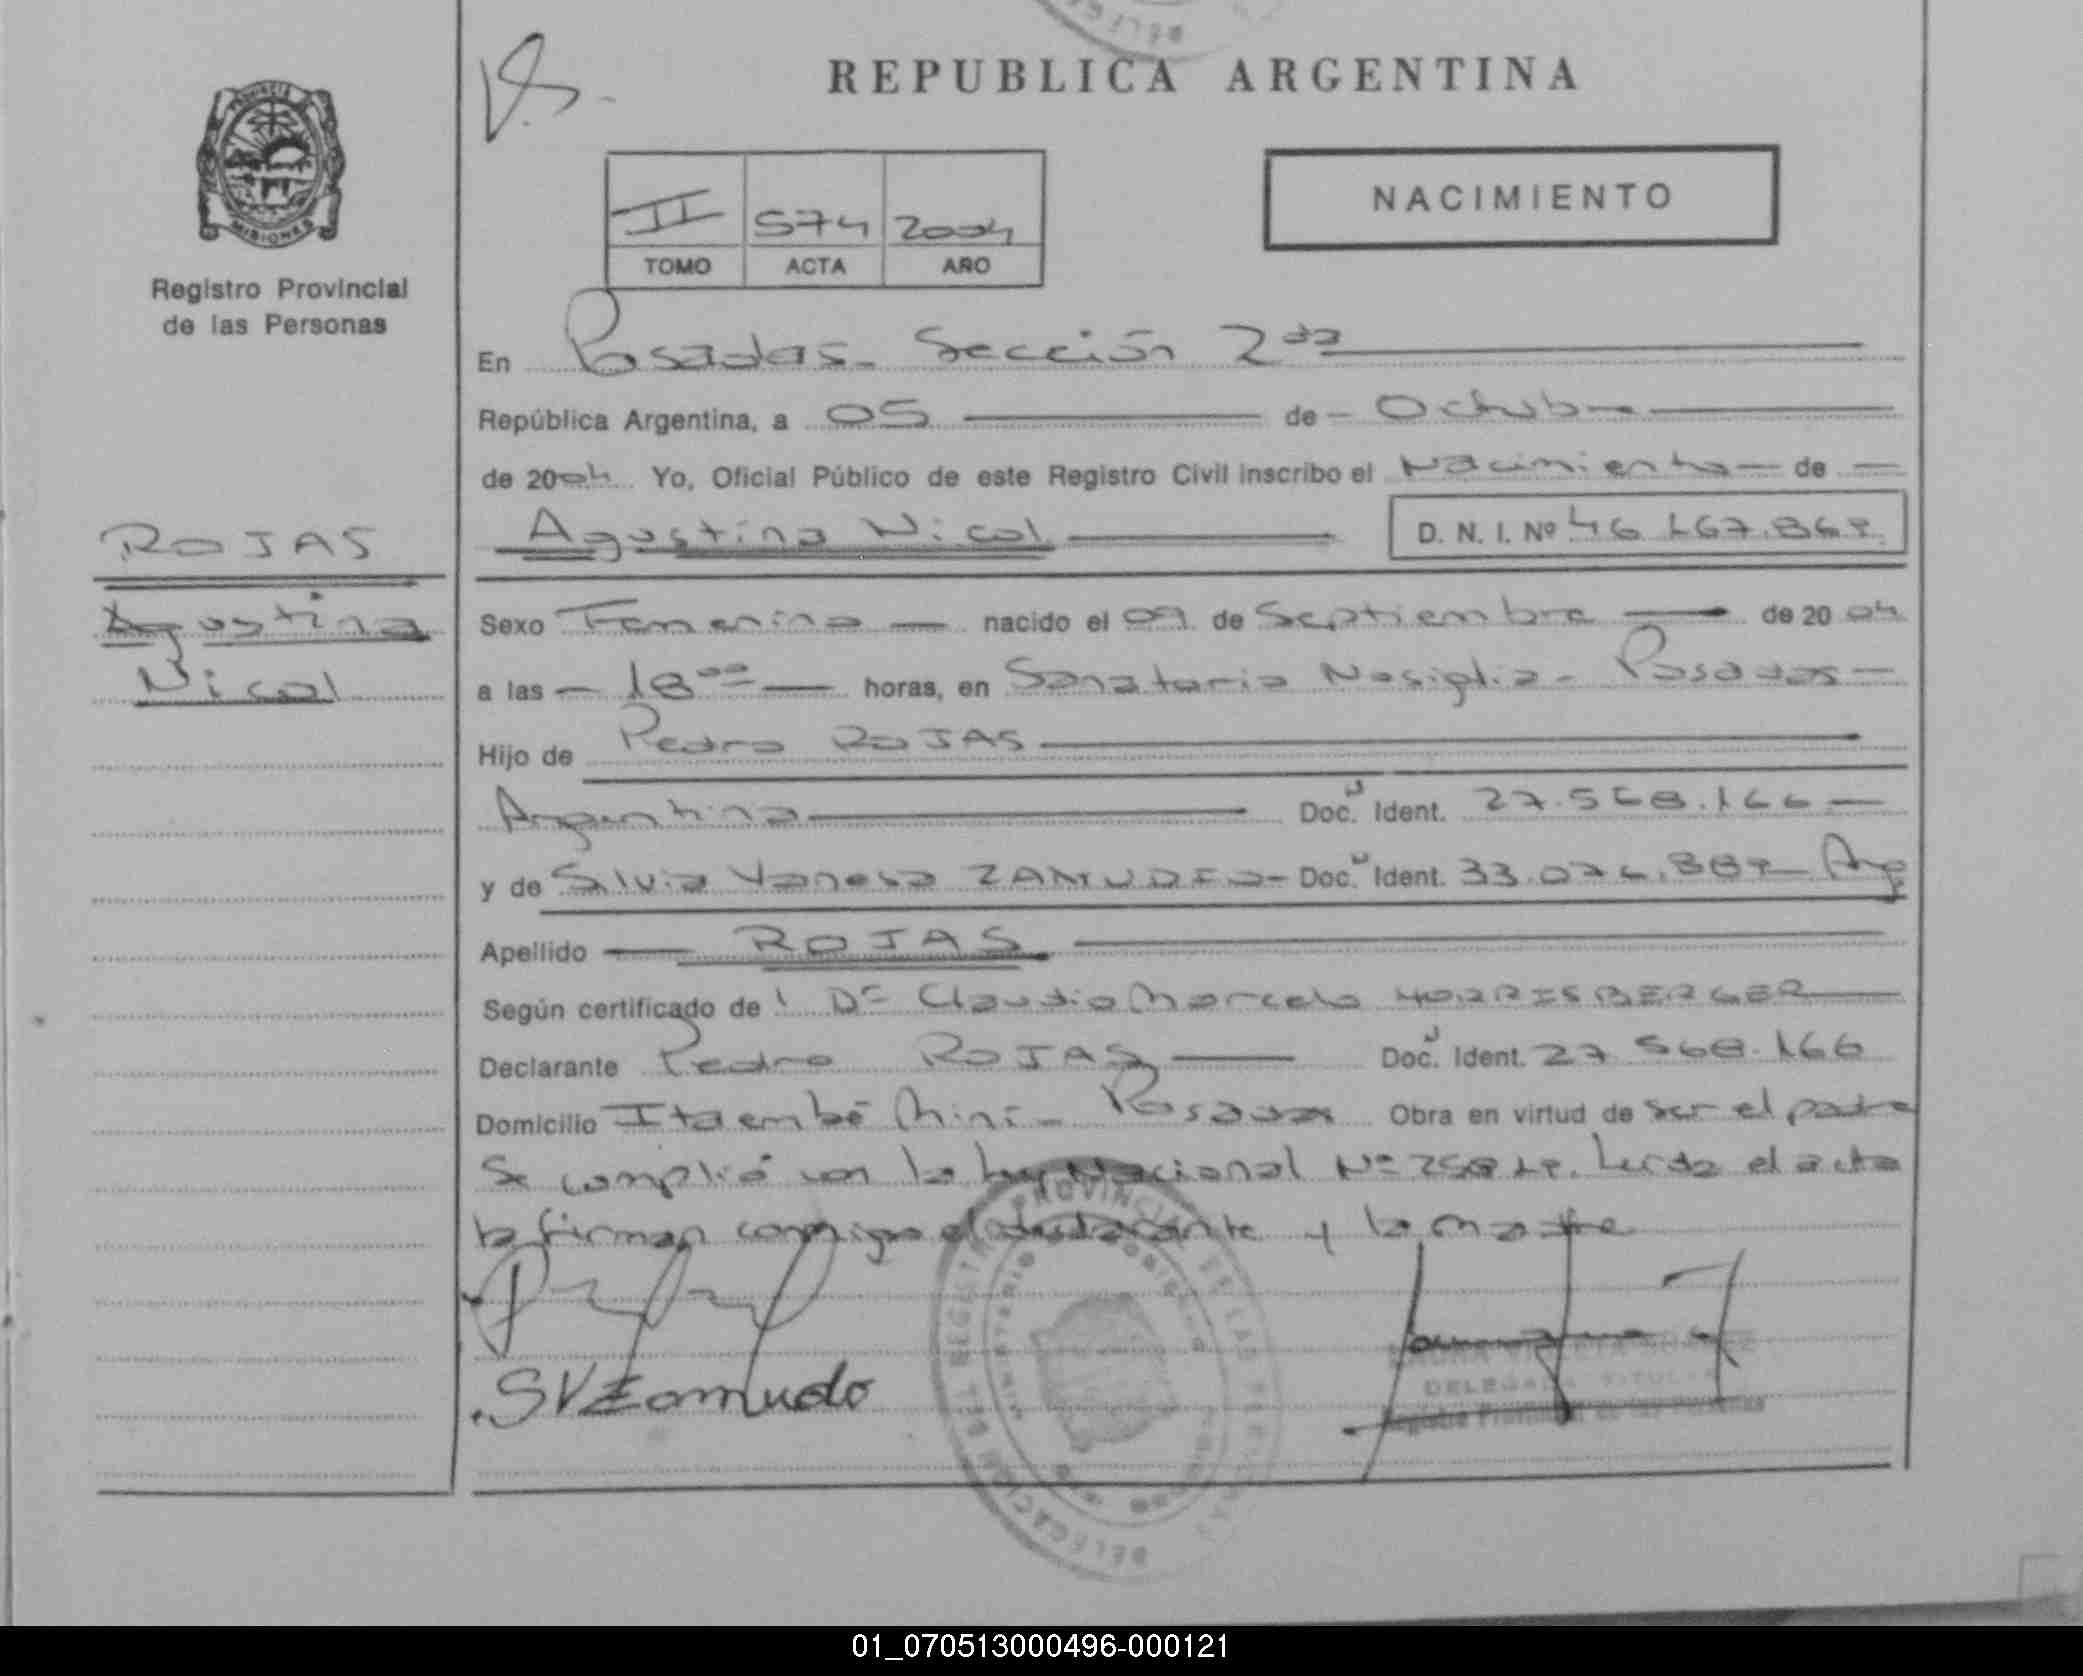 REPUBLICA ARGENTINA
PROVINCIA
MISIONES
Registro Provincial
de las Personas
NACIMIENTO
II 574 2004
TOMO ACTA AÑO
En Posadas - Sección 2da
República Argentina, a 05 de - Octubre
de 2004 Yo, Oficial Público de este Registro Civil inscribo el Nacimiento - de -
Agustina Nicol D. N. I. Nº 46.167.868
ROJAS
Agustina
Nicol
Sexo Femenino - nacido el 09 de Septiembre de 2004
a las - 18 00 - horas, en Sanatorio Nosiglia - Posadas -
Hijo de Pedro ROJAS
Argentino Doc. Ident. 27.568.166 -
y de Silvia Vanesa ZAMUDIO - Doc. Ident. Arg
Apellido ROJAS
Según certificado de Dr Claudio Marcelo HORRISBERGER
Declarante Pedro ROJAS Doc. Ident. 27 568.166
Domicilio Itaembé Miní - Posadas Obra en virtud de ser el padre
Se complió con la Ley Nacional Nº Leída el acta
la firman conmigo el declarante y la madre
SVZamudio
DELEGADA TITULAR
Registro Provincial de las Personas
DELEGACION REGISTRO PROVINCIAL DE LAS PERSONAS
MINISTERIO GOBIERNO
01_070513000496-000121